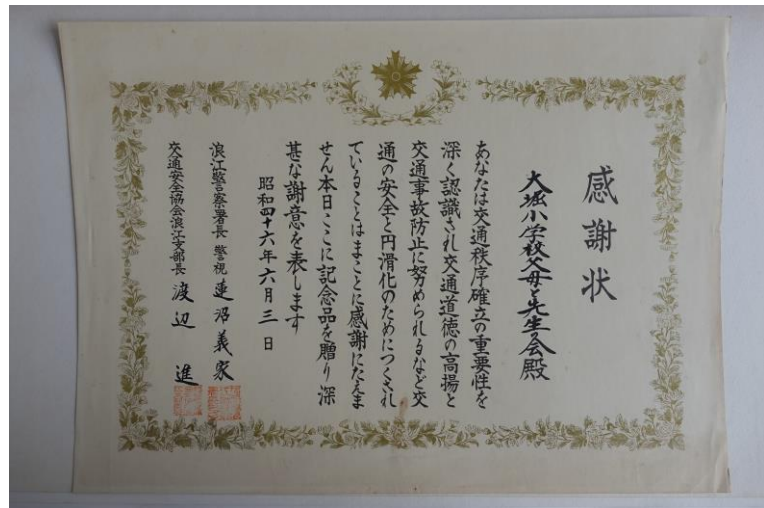 感謝状
大堀小学校父母と先生の会殿
あなたは交通秩序確立の重要性を
深く認識され交通道徳の高揚と
交通事故防止に努められるなど交
通の安全と円滑化のためにつくされ
ていることはまことに感謝にたえま
せん本日ここに記念品を贈り深
甚な謝意を表します
昭和四十六年六月三日
浪江警察署長 警視 蓮沼義家
交通安全協会浪江支部長 渡辺進